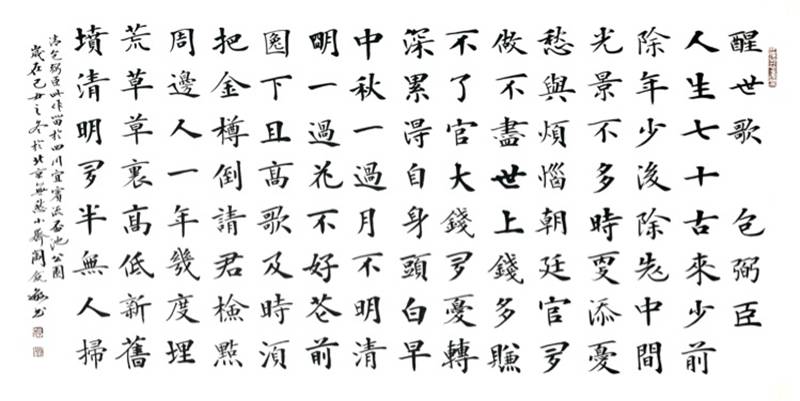 醒世歌 包弼臣
人生七十古來少前
除年少後除老中間
光景不多時更添憂
愁與煩惱朝廷官多
做不盡世上錢多賺
不了官大錢多憂轉
深累得自身頭白早
中秋一過月不明清
明一過花不好花前
月下且高歌及時須
把金樽倒請君檢點
周邊人一年幾度埋
荒草草裏高低新舊
墳清明多半無人掃
清包弼臣此作留於四川宜賓流杯池公園
歲在己丑之冬於北京無愁小齋 書